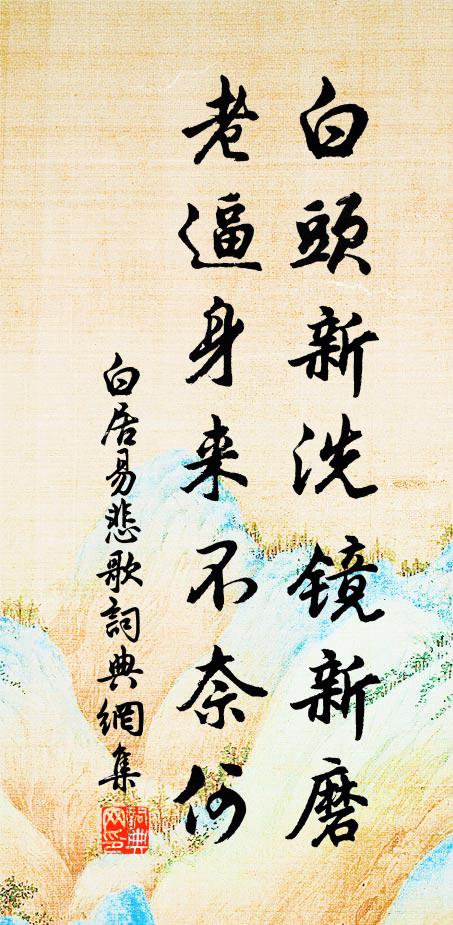 白頭新洗镜新磨
老逼身来不奈何
白居易悲歌詞典網集